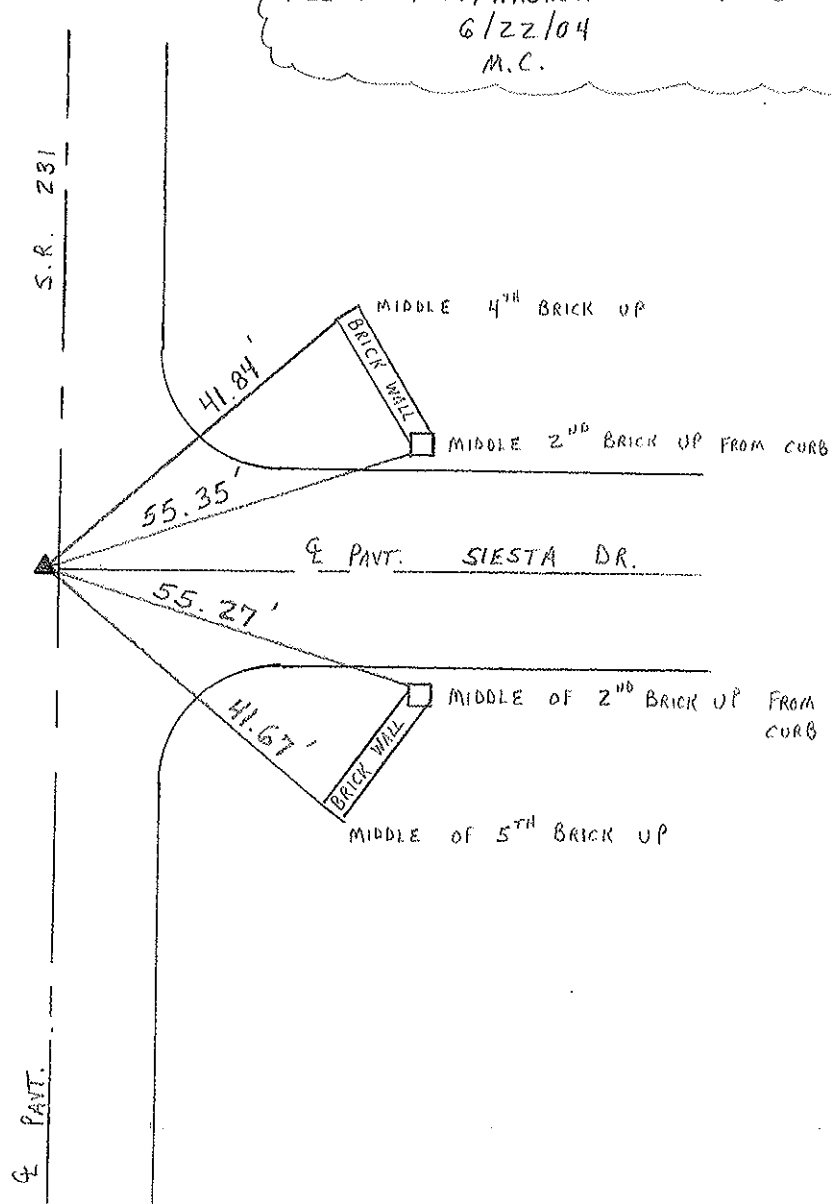 6/22/04
M.C.
S.R. 231
MIDDLE 4TH BRICK UP
BRICK WALL
41.84'
MIDDLE 2ND BRICK UP FROM CURB
55.35'
℄ PAVT. SIESTA DR.
55.27'
MIDDLE OF 2ND BRICK UP FROM
CURB
41.67'
BRICK WALL
MIDDLE OF 5TH BRICK UP
℄ PAVT.